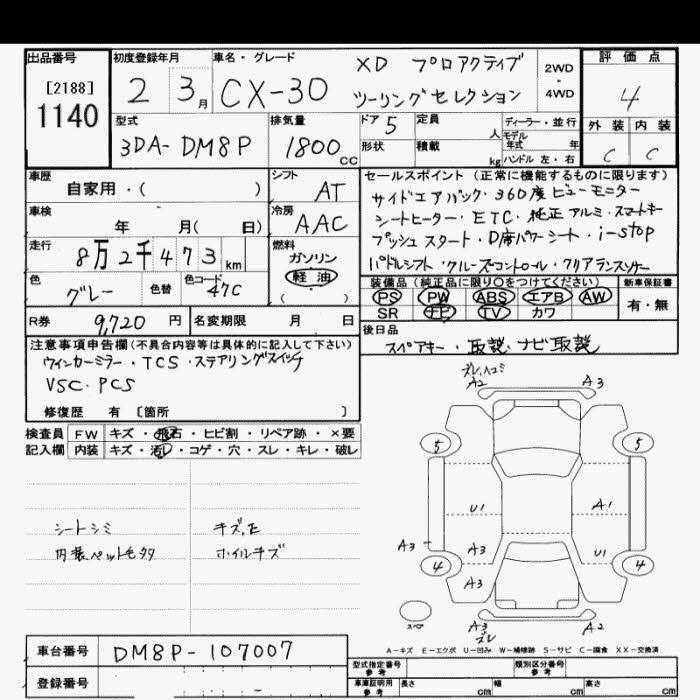 出品番号
[2188]
1140
初度登録年月
2 3月
車名・グレード
CX-30
XD プロアクティブ
ツーリングセレクション
2WD
・
4WD
評価点
4
外装 内装
C C
型式
3DA-DM8P
排気量
1800cc
ドア 5
形状
定員 人
積載 kg
ディーラー・並行
モデル
年式 年
ハンドル 左・右
車歴
自家用・( )
シフト
AT
車検
年 月( 日)
冷房
AAC
走行
8万2千473km
燃料
ガソリン
軽油
( )
色
グレー
色替
色コード
47C
R券 9,720円
名変期限 月 日
セールスポイント(正常に機能するものに限ります)
サイドエアバック・360度ビューモニター
シートヒーター・ETC・純正アルミ・スマートキー
プッシュスタート・D席パワーシート・i-stop
パドルシフト・クルーズコントロール・クリアランスソナー
装備品(純正品に限り○をつけてください)
PS PW ABS エアB AW
SR ナビ TV カワ
新車保証書
有・無
後日品
スペアキー・取説・ナビ取説
注意事項申告欄(不具合内容等は具体的に記入して下さい)
ウィンカーミラー・TCS・ステアリングスイッチ
VSC・PCS
修復歴 有 [箇所 ]
検査員
記入欄
FW キズ・飛石・ヒビ割・リペア跡・×要
内装 キズ・汚レ・コゲ・穴・スレ・キレ・破レ
シートシミ
内装ペット毛多
キズ,E
ホイルキズ
ズレ,ハコミ
A2 A3
5 5
U1 A1
A3 A3 U1
4 4
A3
スペア
A3 A2
ズレ
A-キズ E-エクボ U-凹み W-補修跡 S-サビ C-腐食 XX-交換済
車台番号
DM8P-107007
登録番号
型式指定番号
参考
類別区分番号
参考
車庫証明用
参考
長さ cm
幅 cm
高さ cm